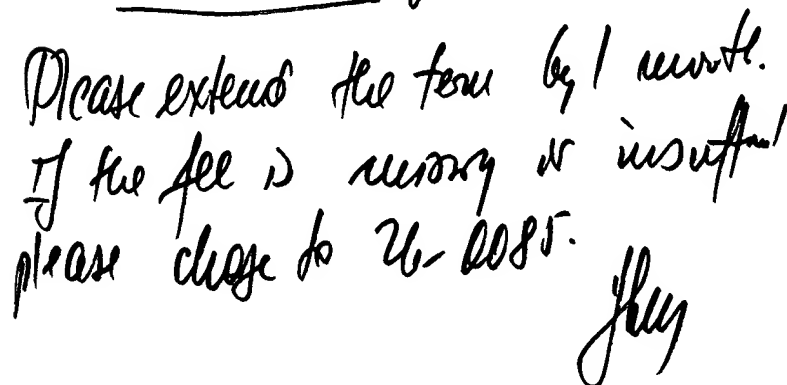 Please extend the term by 1 month.
If the fee is missing or insufficient
please charge to 26-0085.